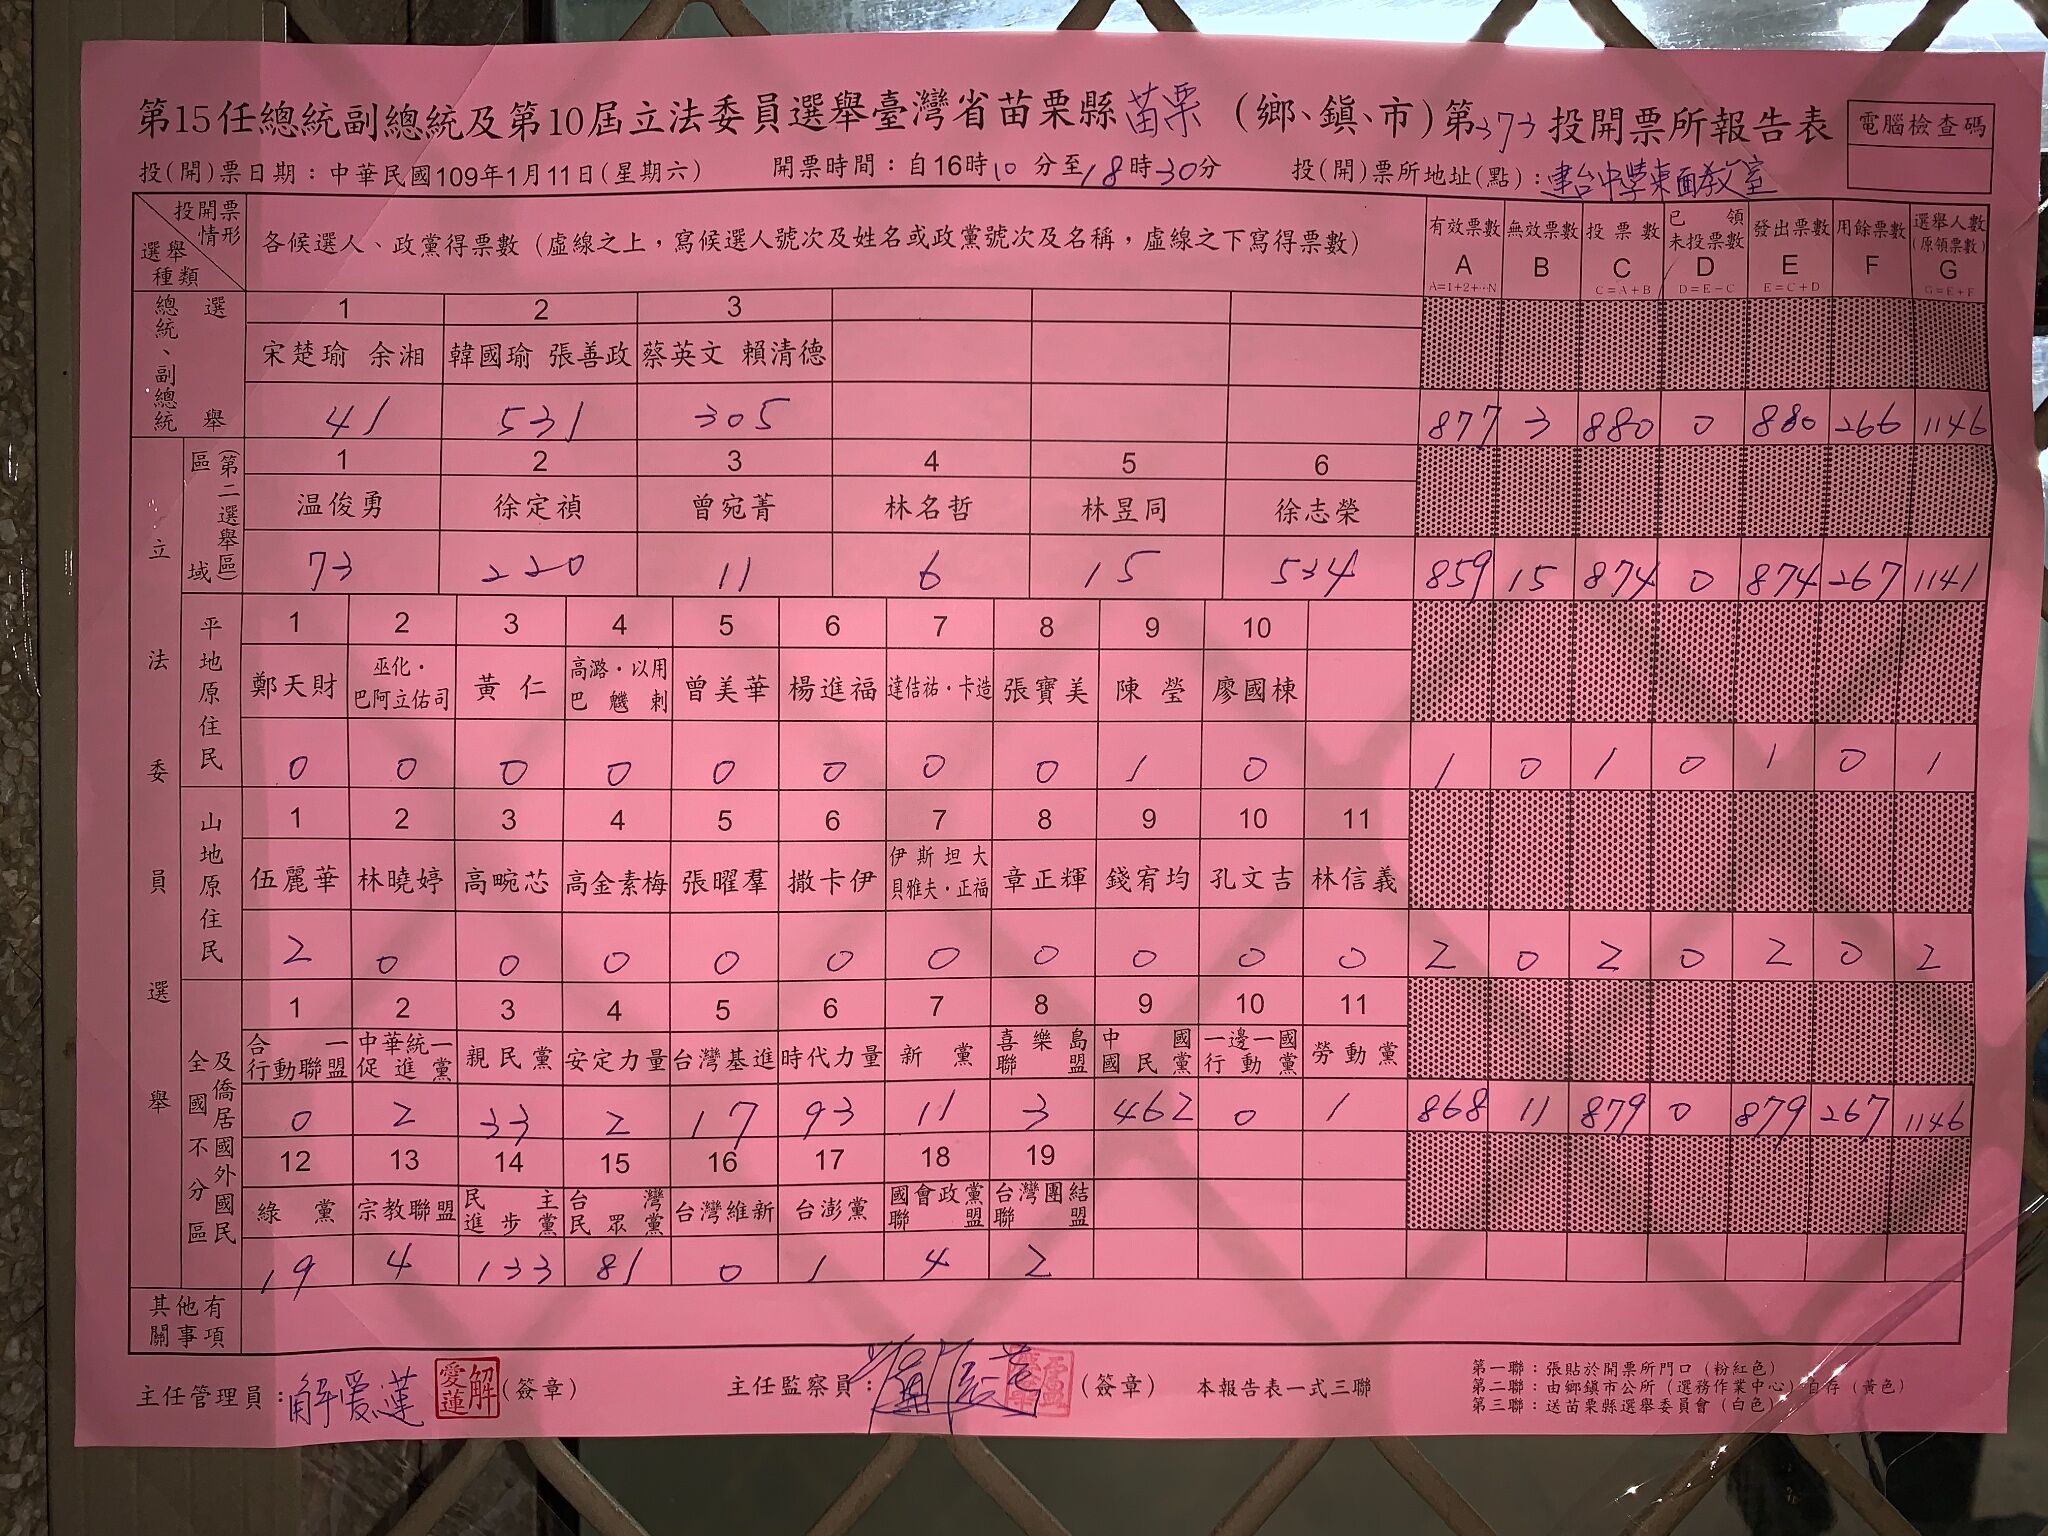 第15任總統副總統及第10屆立法委員選舉臺灣省苗栗縣苗栗(鄉、鎮、市)第373投開票所報告表
電腦檢查碼
投(開)票日期：中華民國109年1月11日(星期六) 開票時間：自16時10分至18時30分 投(開)票所地址(點)：建台中學東面教室
投開票情形 選舉種類 各候選人、政黨得票數（虛線之上，寫候選人號次及姓名或政黨號次及名稱，虛線之下寫得票數）
有效票數 無效票數 投票數 已領未投票數 發出票數 用餘票數 選舉人數(原領票數)
A B C D E F G
A=1+2+…N C=A+B D=E-C E=C+D G=E+F
總統、副總統選舉
1 2 3
宋楚瑜 余湘 韓國瑜 張善政 蔡英文 賴清德
41 531 305 877 3 880 0 880 266 1146
立法委員選舉
區域(第二選舉區)
1 2 3 4 5 6
温俊勇 徐定禎 曾宛菁 林名哲 林昱同 徐志榮
73 220 11 6 15 534 859 15 874 0 874 267 1141
平地原住民
1 2 3 4 5 6 7 8 9 10
鄭天財 巫化・巴阿立佑司 黃仁 高潞・以用巴魕剌 曾美華 楊進福 達佶祐・卡造 張寶美 陳瑩 廖國棟
0 0 0 0 0 0 0 0 1 0 1 0 1 0 1 0 1
山地原住民
1 2 3 4 5 6 7 8 9 10 11
伍麗華 林曉婷 高畹芯 高金素梅 張曜羣 撒卡伊 伊斯坦大貝雅夫・正福 章正輝 錢宥均 孔文吉 林信義
2 0 0 0 0 0 0 0 0 0 0 2 0 2 0 2 0 2
全國不分區及僑居國外國民
1 2 3 4 5 6 7 8 9 10 11
合一行動聯盟 中華統一促進黨 親民黨 安定力量 台灣基進 時代力量 新黨 喜樂島聯盟 中國國民黨 一邊一國行動黨 勞動黨
0 2 33 2 17 93 11 3 462 0 1 868 11 879 0 879 267 1146
12 13 14 15 16 17 18 19
綠黨 宗教聯盟 民主進步黨 台灣民眾黨 台灣維新 台澎黨 國會政黨聯盟 台灣團結聯盟
19 4 133 81 0 1 4 2
其他有關事項
主任管理員：解愛蓮 解愛蓮 (簽章) 主任監察員： (簽章) 本報告表一式三聯
第一聯：張貼於開票所門口（粉紅色）
第二聯：由鄉鎮市公所（選務作業中心）自存（黃色）
第三聯：送苗栗縣選舉委員會（白色）